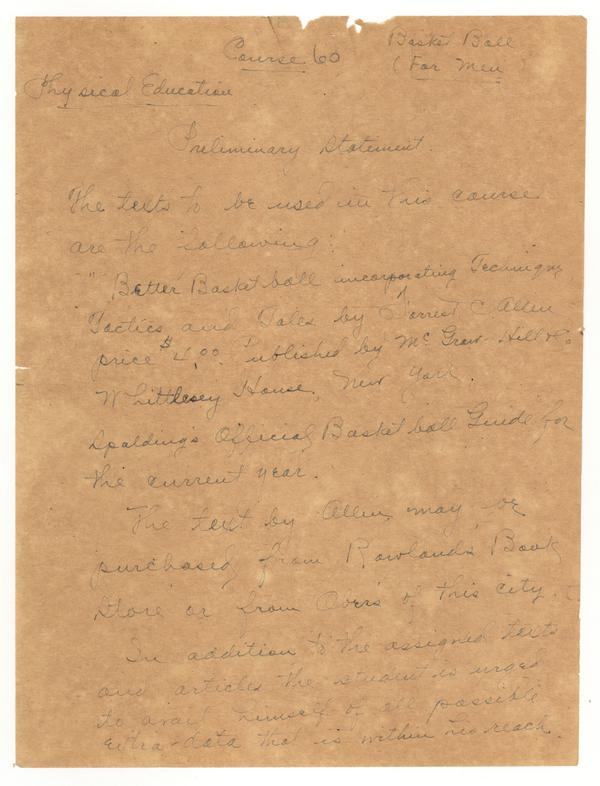 Course 60
Basket Ball
(For Men)
Physical Education
Preliminary Statement.
The texts to be used in this course
are the following:
"Better Basketball incorporating Technique
Tactics and Tales by Forrest C. Allen
price $4.00. Published by McGraw-Hill Co.
Whittlesey House, New York.
Spalding's Official Basketball Guide for
the current year.
The text by Allen may be
purchased from Rowlands Book
Store or from Ober's of this city.
In addition to the assigned texts
and articles the student is urged
to avail himself of all possible
extra-data that is within his reach.